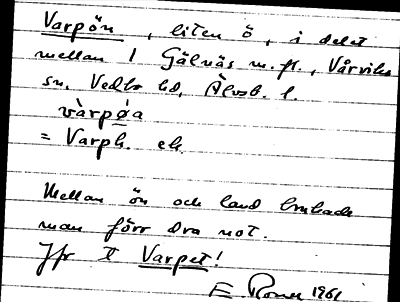 Varpön, liten ö, i delat
mellan 1 Gälnäs m. fl., Vårviks
sn, Vedbo hd, Älvsb. l.
vàrpǿa
= Varph. ek.
Mellan ön och land brukade
man förr dra not.
Jfr t Varpet!
E 1961